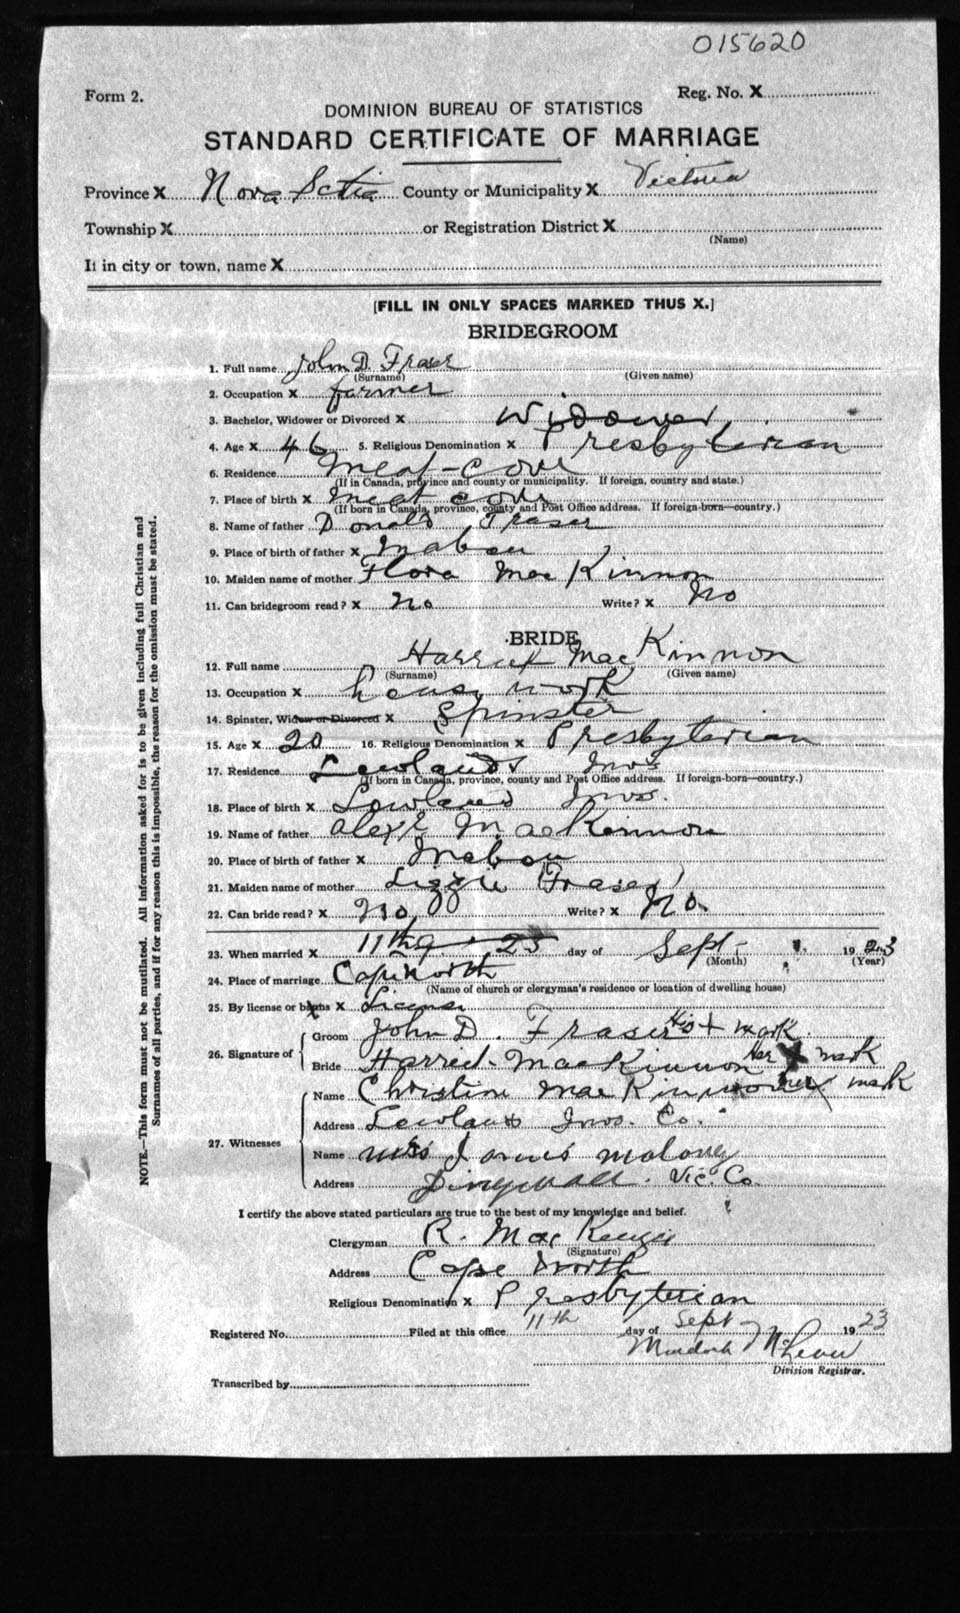 015620
Form 2.
Reg. No. X
DOMINION BUREAU OF STATISTICS
STANDARD CERTIFICATE OF MARRIAGE
Province X Nova Sctia County or Municipality X Victoria
Township X or Registration District X
(Name)
If in city or town, name X
[FILL IN ONLY SPACES MARKED THUS X.]
BRIDEGROOM
1. Full name John D. Fraser
(Surname) (Given name)
2. Occupation X farmer
3. Bachelor, Widower or Divorced X Widower
4. Age X 46 5. Religious Denomination X Presbyterian
6. Residence Meat-Cove
(If in Canada, province and county or municipality. If foreign, country and state.)
7. Place of birth X Meat cove
(If born in Canada, province, county and Post Office address. If foreign-born—country.)
8. Name of father Donald Fraser
9. Place of birth of father X Mabou
10. Maiden name of mother Flora MacKinnon
11. Can bridegroom read? X No Write? X No
BRIDE
12. Full name Harriet MacKinnon
(Surname) (Given name)
13. Occupation X house work
14. Spinster, Widow or Divorced X Spinster
15. Age X 20 16. Religious Denomination X Presbyterian
17. Residence Lowlands Invs
(If born in Canada, province, county and Post Office address. If foreign-born—country.)
18. Place of birth X Lowland Invs.
19. Name of father Alexr MacKinnon
20. Place of birth of father X Mabou
21. Maiden name of mother Lizzie Fraser
22. Can bride read? X No Write? X No.
23. When married X 11th day of Sept 1923
(Month) (Year)
24. Place of marriage Cape North
(Name of church or clergyman's residence or location of dwelling house)
25. By license or banns X License
26. Signature of Groom John D. Fraser his + mark
Bride Harried MacKinnon Her X mark
27. Witnesses Name Christine MacKinnon her X mark
Address Lowlands Invs. Co.
Name Mrs James Malony
Address Dingwall. Vic. Co.
I certify the above stated particulars are true to the best of my knowledge and belief.
Clergyman R. MacKenzie
(Signature)
Address Cape North
Religious Denomination X Presbyterian
Registered No. Filed at this office 11th day of Sept 1923
Murdoch
Division Registrar.
Transcribed by
NOTE.—This form must not be mutilated. All information asked for is to be given including full Christian and
Surnames of all parties, and if for any reason this is impossible, the reason for the omission must be stated.